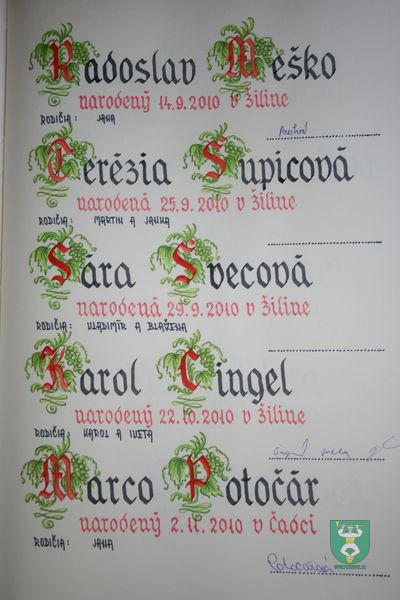 Radoslav Meško
narodený 14.9.2010 v žiline
RODIČIA: JANA
Terézia Šupicová
narodená 25.9.2010 v žiline
RODIČIA: MARTIN A JANKA
Sára Švecová
narodená 29.9.2010 v žiline
RODIČIA: VLADIMÍR A BLAŽENA
Karol Cingel
narodený 22.10.2010 v žiline
RODIČIA: KAROL A IVETA
Marco Potočár
narodený 2.11.2010 v čadci
RODIČIA: JANA
Potočárová